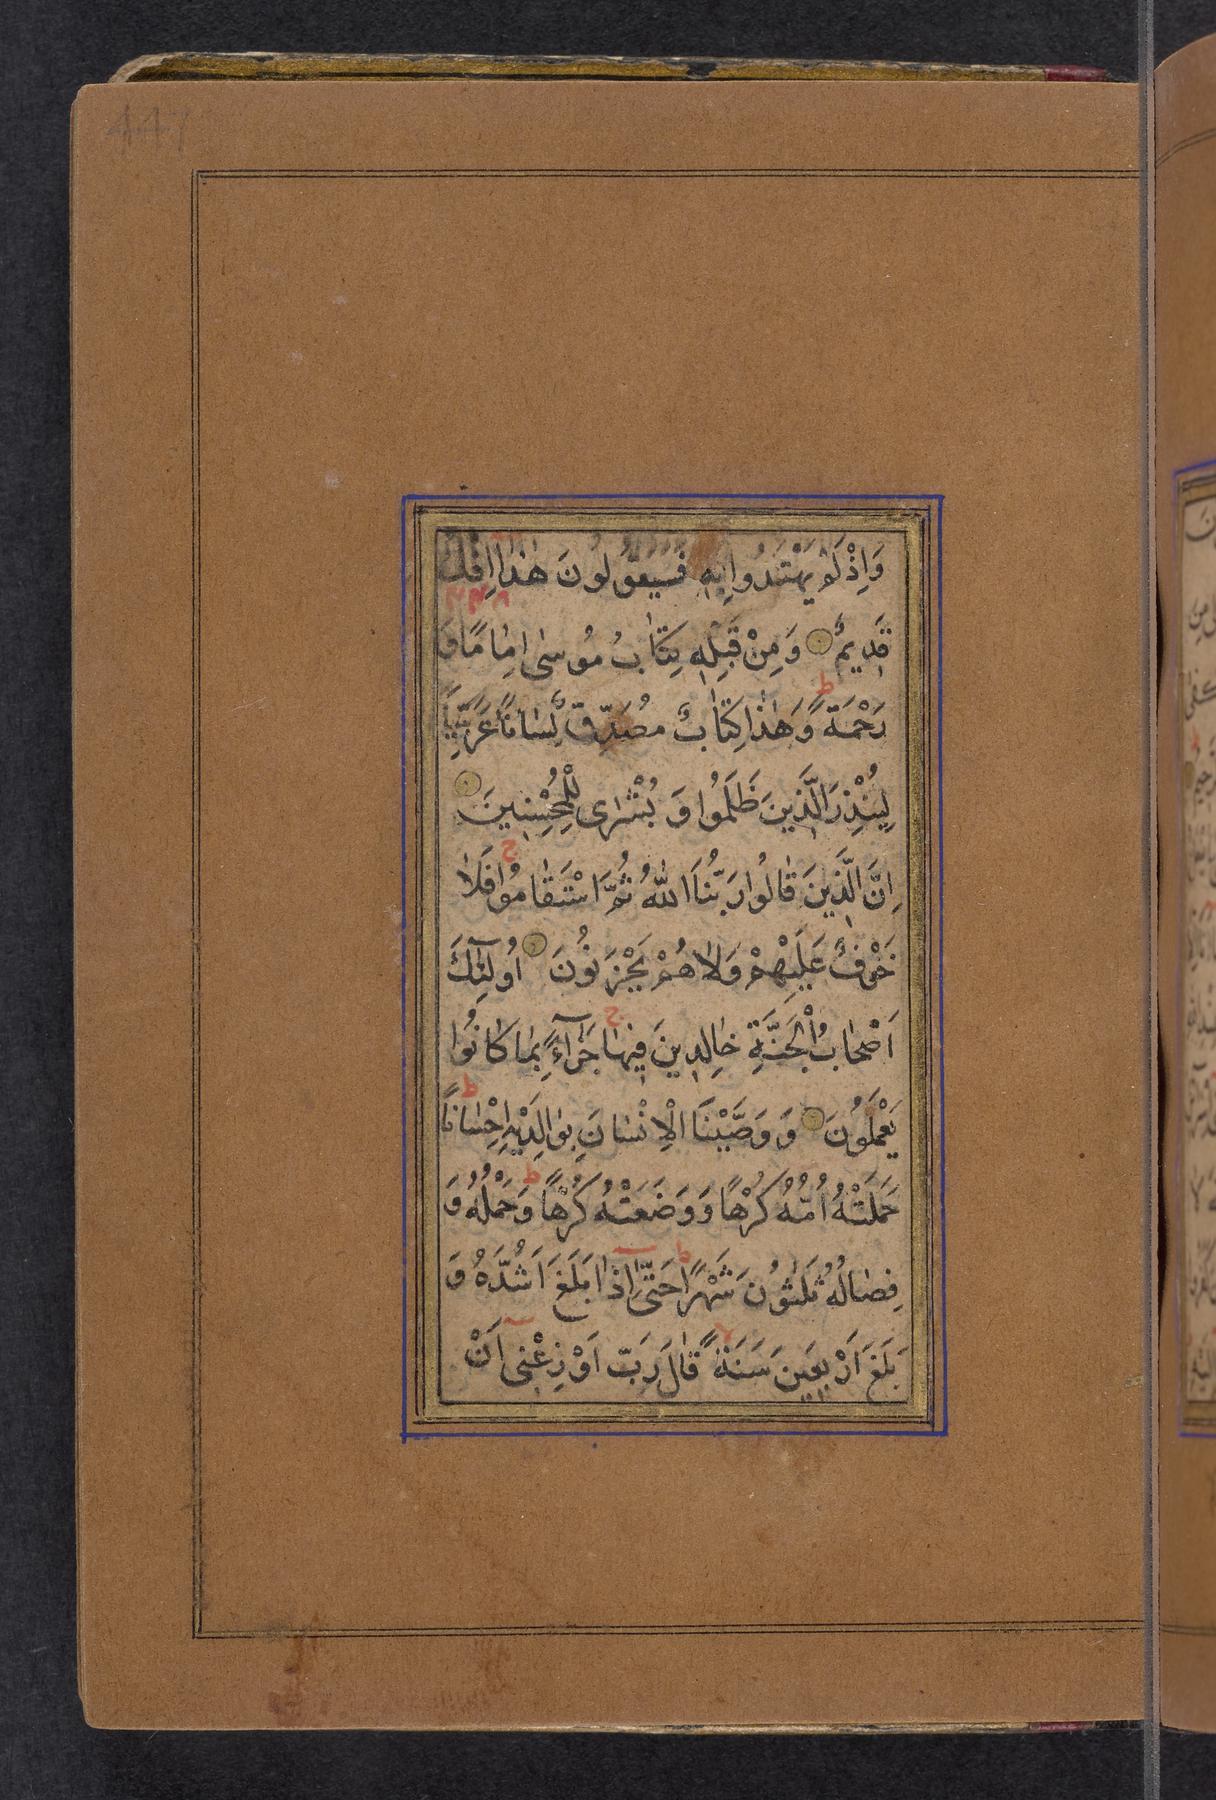 447
وَاِذْ لَمْ يَهْتَدُوا بِهٖ فَسَيَقُولُونَ هٰذٰا اِفْكٌ
قَدِيمٌ وَ مِنْ قَبْلِهٖ كِتٰابُ مُوسٰى اِمٰامًا وَ
رَحْمَةً وَ هٰذٰا كِتٰابٌ مُصَدِّقٌ لِسٰانًا عَرَبِيًّا
لِيُنْذِرَ الَّذِينَ ظَلَمُوا وَ بُشْرٰى لِلْمُحْسِنِينَ
اِنَّ الَّذِينَ قٰالُوا رَبُّنَا اللّٰهُ ثُمَّ اسْتَقٰامُوا فَلٰا
خَوْفٌ عَلَيْهِمْ وَلٰا هُمْ يَحْزَنُونَ اُولٰٓئِكَ
اَصْحٰابُ الْجَنَّةِ خٰالِدِينَ فِيهٰا جَزٰآءً بِمٰا كٰانُوا
يَعْمَلُونَ وَ وَصَّيْنَا الْاِنْسٰانَ بِوٰالِدَيْهِ اِحْسٰانًا
حَمَلَتْهُ اُمُّهُ كُرْهًا وَ وَضَعَتْهُ كُرْهًا وَ حَمْلُهُ وَ
فِصٰالُهُ ثَلٰثُونَ شَهْرًا حَتّٰٓى اِذٰا بَلَغَ اَشُدَّهُ وَ
بَلَغَ اَرْبَعِينَ سَنَةً قٰالَ رَبِّ اَوْزِعْنِىٓ اَنْ